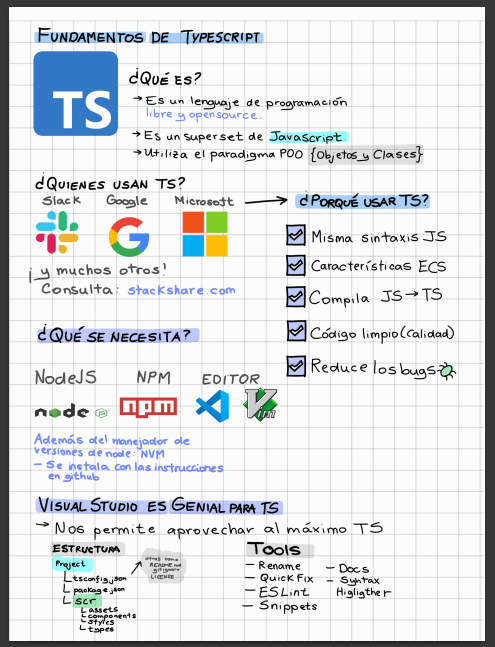 FUNDAMENTOS DE TYPESCRIPT
TS
¿QUÉ ES?
→ Es un lenguaje de programación
libre y opensource.
→ Es un superset de Javascript
→ Utiliza el paradigma POO {Objetos y Clases}
¿QUIENES USAN TS?
Slack Google Microsoft
¡y muchos otros!
Consulta: stackshare.com
¿PORQUÉ USAR TS?
Misma sintaxis JS
Características ECS
Compila JS → TS
Código limpio (calidad)
Reduce los bugs
¿QUÉ SE NECESITA?
NodeJS NPM EDITOR
node JS npm Vim
Además del manejador de
versiones de node: NVM
— Se instala con las instrucciones
en github
VISUAL STUDIO ES GENIAL PARA TS
→ Nos permite aprovechar al máximo TS
ESTRUCTURA
Project
tsconfig.json
package.json
scr
assets
components
styles
types
otros como
README.md
.gitignore
LICENSE
Tools
— Rename
— QuickFix
— ESLint
— Snippets
— Docs
— Syntax
Higligther